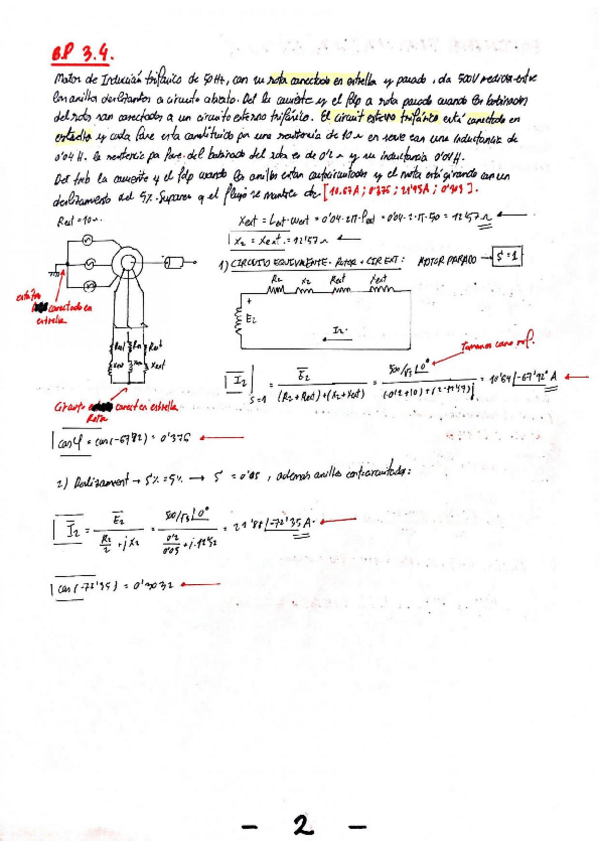 BP 3.4.
Motor de Inducción trifásico de 50Hz, con su rotor conectado en estrella y parado, da 500V medidos entre
los anillos deslizantes a circuito abierto. Det la corriente y el fdp a rotor parado cuando los bobinados
del rotor son conectados a un circuito externo trifásico. El circuit externo trifásico está conectado en
estrella y cada fase esta constituida por una resitencia de 10 Ω en serie con una inductancia de
0'04 H. la resitencia por fase del bobinado del rotor es de 0'2 Ω y su inductancia 0'04 H.
Det tmb la corriente y el fdp cuando los anillos estan cortocircuitados y el motor está girando con un
deslizamiento del 5%. Suponer q el flujo se mantiene cte [10.67A; 0'375; 21'95A; 0'303].
Rext = 10Ω.
Xext = Lext · ωext = 0'04 · 2π · fext = 0'04 · 2 · π · 50 = 12'57 Ω
X2 = Xext = 12'57 Ω
1) CIRCUITO EQUIVALENTE. Rotor + CIR EXT: MOTOR PARADO → S = 1
R2 X2 Rext Xext
+
E2
I2
conectado en
estrella
Rext Rext Rext
Xext Xext Xext
Circuito conect en estrella
Rotor
Tomamos como ref.
I2 | S=1 = E2 / (R2 + Rext) + (X2 + Xext) = 500/√3 |0° / (0'2 + 10) + (2 · 12'57)j = 10'64 |-67'92° A
cos φ = cos(-67'92) = 0'375
2) Deslizament → 5% = S% → S = 0'05, además anillos cortocircuitados:
I2 = E2 / R2/2 + jX2 = 500/√3 |0° / 0'2/0'05 + j·12'52 = 21'88 |-72'35 A.
cos(-72'35) = 0'3032
- 2 -